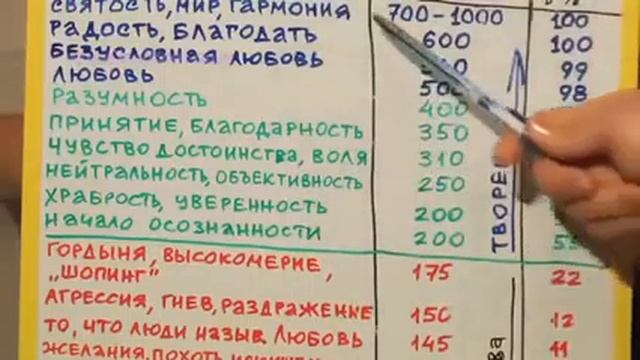 СВЯТОСТЬ, МИР, ГАРМОНИЯ 700-1000 100
РАДОСТЬ, БЛАГОДАТЬ 600 100
БЕЗУСЛОВНАЯ ЛЮБОВЬ 99
ЛЮБОВЬ 500 98
РАЗУМНОСТЬ 400
ПРИНЯТИЕ, БЛАГОДАРНОСТЬ 350
ЧУВСТВО ДОСТОИНСТВА, ВОЛЯ 310
НЕЙТРАЛЬНОСТЬ, ОБЪЕКТИВНОСТЬ 250
ХРАБРОСТЬ, УВЕРЕННОСТЬ 200
НАЧАЛО ОСОЗНАННОСТИ 200
ГОРДЫНЯ, ВЫСОКОМЕРИЕ, 175 22
„ШОПИНГ"
АГРЕССИЯ, ГНЕВ, РАЗДРАЖЕНИЕ 150 12
ТО, ЧТО ЛЮДИ НАЗЫВ. ЛЮБОВЬ 145 11
ЖЕЛАНИЯ, ПОХОТЬ